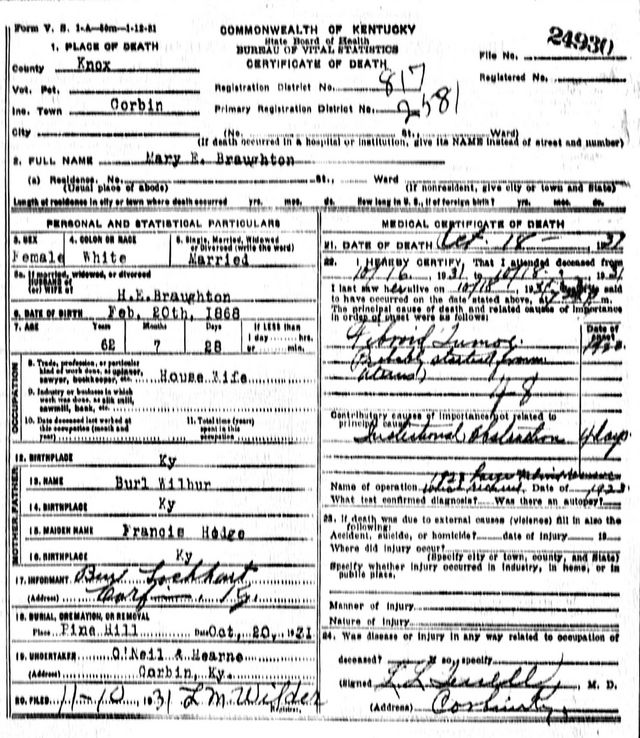 Form V. S. 1-A—50m—1-12-31
COMMONWEALTH OF KENTUCKY
State Board of Health
BUREAU OF VITAL STATISTICS
CERTIFICATE OF DEATH
File No. 24930
Registered No.
1. PLACE OF DEATH
County Knox
Vot. Pct.
Inc. Town Corbin
Registration District No. 817
Primary Registration District No. 2581
City (No. St., Ward)
(If death occurred in a hospital or institution, give its NAME instead of street and number)
2. FULL NAME Mary E. Braughton
(a) Residence. No. St., Ward
(Usual place of abode) (If nonresident, give city or town and State)
Length of residence in city or town where death occurred yrs. mos. ds. How long in U. S., if of foreign birth? yrs. mos. ds.
PERSONAL AND STATISTICAL PARTICULARS
3. SEX Female
4. COLOR OR RACE White
5. Single, Married, Widowed or Divorced (write the word) Married
5a. If married, widowed, or divorced
HUSBAND of
(or) WIFE of H.E.Braughton
6. DATE OF BIRTH Feb. 20th, 1868
7. AGE Years Months Days If LESS than
1 day hrs.
or min.
62 7 28
OCCUPATION
8. Trade, profession, or particular
kind of work done, as spinner,
sawyer, bookkeeper, etc. House Wife
9. Industry or business in which
work was done, as silk mill,
sawmill, bank, etc.
10. Date deceased last worked at
this occupation (month and
year)
11. Total time (years)
spent in this
occupation
12. BIRTHPLACE Ky
FATHER
13. NAME Burl Wilbur
14. BIRTHPLACE Ky
MOTHER
15. MAIDEN NAME Francis Hodge
16. BIRTHPLACE Ky
17. INFORMANT Burl Lockhart
(Address) Ky.
18. BURIAL, CREMATION, OR REMOVAL
Place Pine Hill Date Oct, 20, 1931
19. UNDERTAKER O'Neil & Hearne
(Address) Corbin, Ky.
20. FILED 11-10 1931 L M Wilder
Registrar.
MEDICAL CERTIFICATE OF DEATH
21. DATE OF DEATH Oct. 18 — 1931
22. I HEREBY CERTIFY, That I attended deceased from
10/16, 1931 to 10/18, 1931
I last saw her alive on 10/18, 1931, death is said
to have occurred on the date stated above, at m.
The principal cause of death and related causes of importance
in order of onset were as follows:
Date of onset
Fibroid Tumor
(Probably started from
Uterus)
48
Contributory causes of importance not related to
principal cause:
Intestinal Obstruction 4 days
Name of operation Date of 1928
What test confirmed diagnosis? Was there an autopsy?
23. If death was due to external causes (violence) fill in also the
following:
Accident, suicide, or homicide? date of injury 19
Where did injury occur?
(Specify city or town, county, and State)
Specify whether injury occurred in industry, in home, or in
public place.
Manner of Injury
Nature of Injury
24. Was disease or injury in any way related to occupation of
deceased? If so, specify
(Signed) M. D.
(Address) Corbin Ky